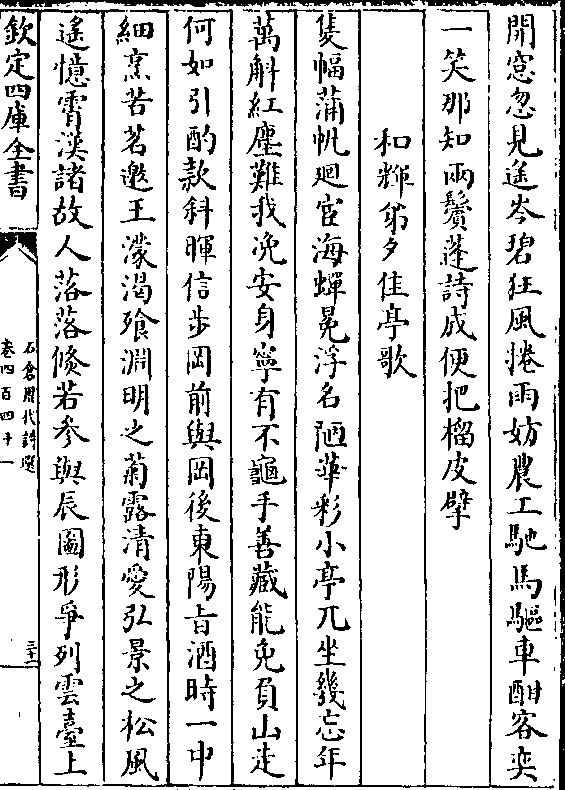 開窓忽見遙岑碧狂風捲雨妨農工馳馬驅車酣客奕
一笑那知兩鬢蓬詩成便把榴皮擘
和輝弟夕佳亭歌
隻幅蒲帆廻宦海蟬冕浮名陋華彩小亭兀坐幾忘年
萬斛紅塵難我浼安身寧有不龜手善藏能免負山走
何如引酌款斜暉信步岡前與岡後東陽旨酒時一中
細烹苦茗邀王濛渴飱淵明之菊露清愛弘景之松風
遙憶霅溪諸故人落落倐若參與辰圖形爭列雲臺上
欽定四庫全書
石倉歷代詩選
卷四百四十一